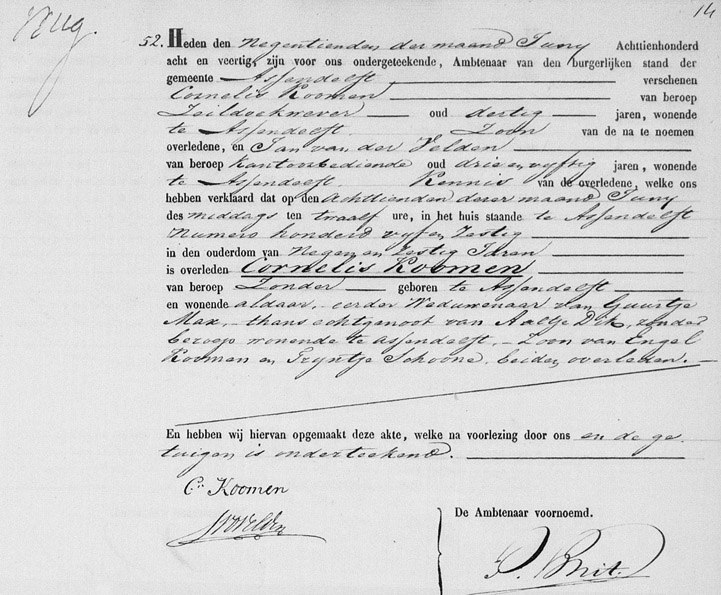 14
52. Heden den Negentienden der maand Juny Achttienhonderd
acht en veertig, zijn voor ons ondergeteekende, Ambtenaar van den burgerlijken stand der
gemeente Assendelft verschenen
Cornelis Koomen van beroep
Zeildoekwever oud dertig jaren, wonende
te Assendelft Zoon van de na te noemen
overledene, en Jan van der Velden
van beroep Kantoorbediende oud drie en vyftig jaren, wonende
te Assendelft. Kennis van de overledene, welke ons
hebben verklaard dat op den Achttienden dezer maand Juny
des middags ten twaalf ure, in het huis staande te Assendelft
Numero honderd vyf en Zestig
in den ouderdom van Negen en Zestig Jaren
is overleden Cornelis Koomen
van beroep Zonder geboren te Assendelft
en wonende aldaar, eerder Weduwenaar van Guurtje
Max, thans echtgenoot van Aaltje Dek, zonder
beroep wonende te Assendelft. Zoon van Engel
Koomen en Tryntje Schoone, beiden overleden.
En hebben wij hiervan opgemaakt deze akte, welke na voorlezing door ons en de ge-
tuigen is onderteekend.
Cs Koomen
De Ambtenaar voornoemd.